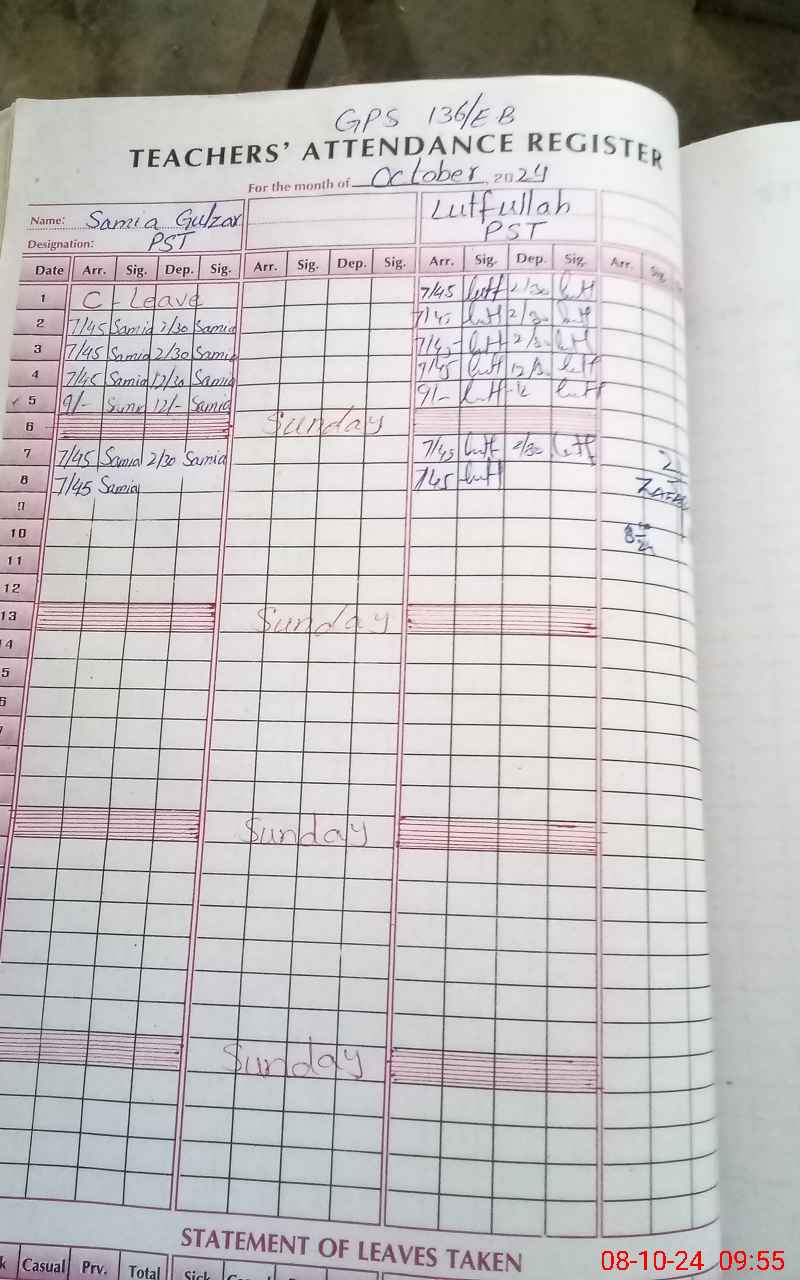 GPS 136/EB
TEACHERS' ATTENDANCE REGISTER
For the month of October 2024
Name: Samia Gulzar Lutfullah
Designation: PST PST
Date Arr. Sig. Dep. Sig. Arr. Sig. Dep. Sig. Arr. Sig. Dep. Sig. Arr. Sig.
1 C-Leave 7/45 lutf 2/30 lutf
2 7/45 Samia 2/30 Samia 7/45 lutf 2/30 lutf
3 7/45 Samia 2/30 Samia 7/45 lutf 2/30 lutf
4 7/45 Samia 12/30 Samia 7/45 lutf 12/30 lutf
5 9/- Samia 12/- Samia 9/- lutf 12 lutf
6 Sunday
7 7/45 Samia 2/30 Samia 7/45 lutf 2/30 lutf
8 7/45 Samia 7/45 lutf
9
10
11
12
13 Sunday
14
15
Sunday
Sunday
STATEMENT OF LEAVES TAKEN
Casual Prv. Total Sick
08-10-24 09:55